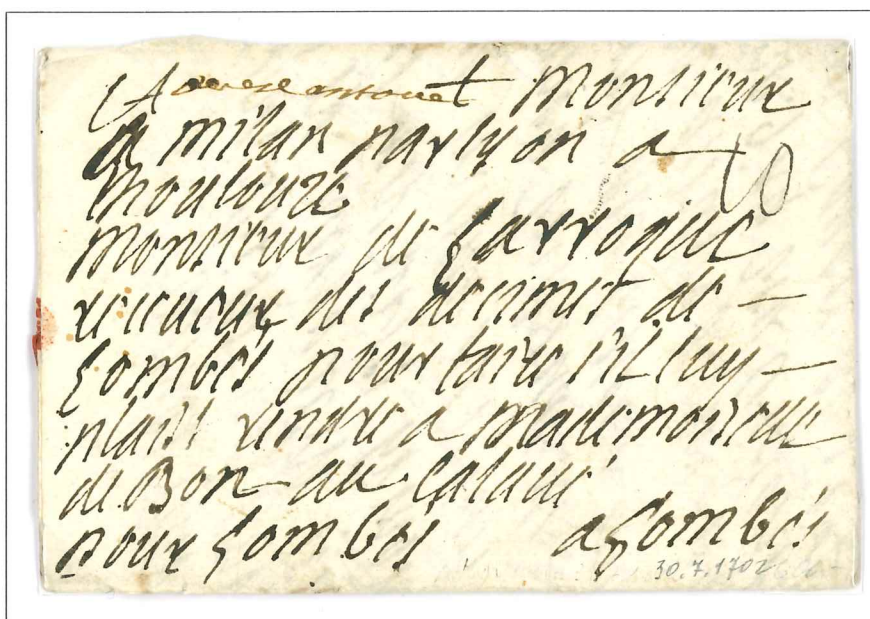 A Monsieur
a milan par lyon a
Thoulouze
monsieur de Larroque
receueur des decimes de
Lombés pour faire s'il luy
plaist rendre a mademoiselle
de Bon au
pour Lombes a Lombés
30.7.1702